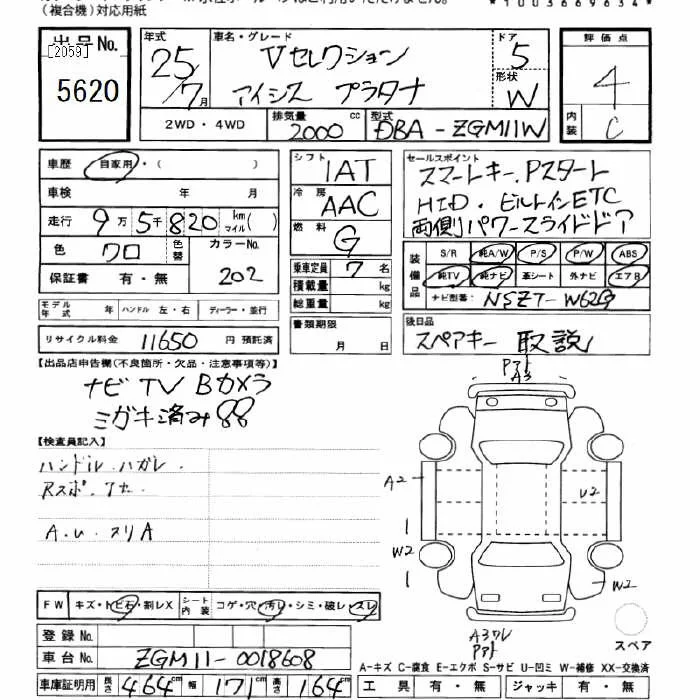 （複合機）対応用紙
*1003669634*
出品No.
[2059]
5620
年式
25/7月
車名・グレード
Vセレクション
アイシス プラタナ
ドア
5
形状
W
評価点
4
内装
C
2WD・4WD
排気量 2000 cc
型式 DBA-ZGM11W
車歴 自家用・( )
車検 年 月
走行 9万5千820 km マイル( )
色 クロ
色替
カラーNo.
202
保証書 有・無
シフト 1AT
冷房 AAC
燃料 G
乗車定員 7 名
積載量 kg
総重量 kg
セールスポイント
スマートキー、Pスタート
HID・ビルトインETC
両側パワースライドドア
装備品
S/R 純A/W P/S P/W ABS
純TV 純ナビ 革シート 外ナビ エアB
ナビ型番: NSZT-W62G
モデル年式 年 ハンドル 左・右 ディーラー・並行
リサイクル料金 11650 円 預託済
書類期限
月 日
後日品
スペアキー 取説
【出品店申告欄(不良箇所・欠品・注意事項等)】
ナビTV Bカメラ
ミガキ済み 88
【検査員記入】
ハンドル ハガレ.
A.U.スリA
Pアト
A3
A2
U2
W2
W2
Pアト
スペア
FW キズ・トビ石・割レX
シート内装 コゲ・穴・汚レ・シミ・破レ・スレ
登録No.
車台No. ZGM11-0018608
車庫証明用 長さ 464cm 幅 171cm 高さ 164cm
A-キズ C-腐食 E-エクボ S-サビ U-凹ミ W-補修 XX-交換済
工具 有・無 ジャッキ 有・無